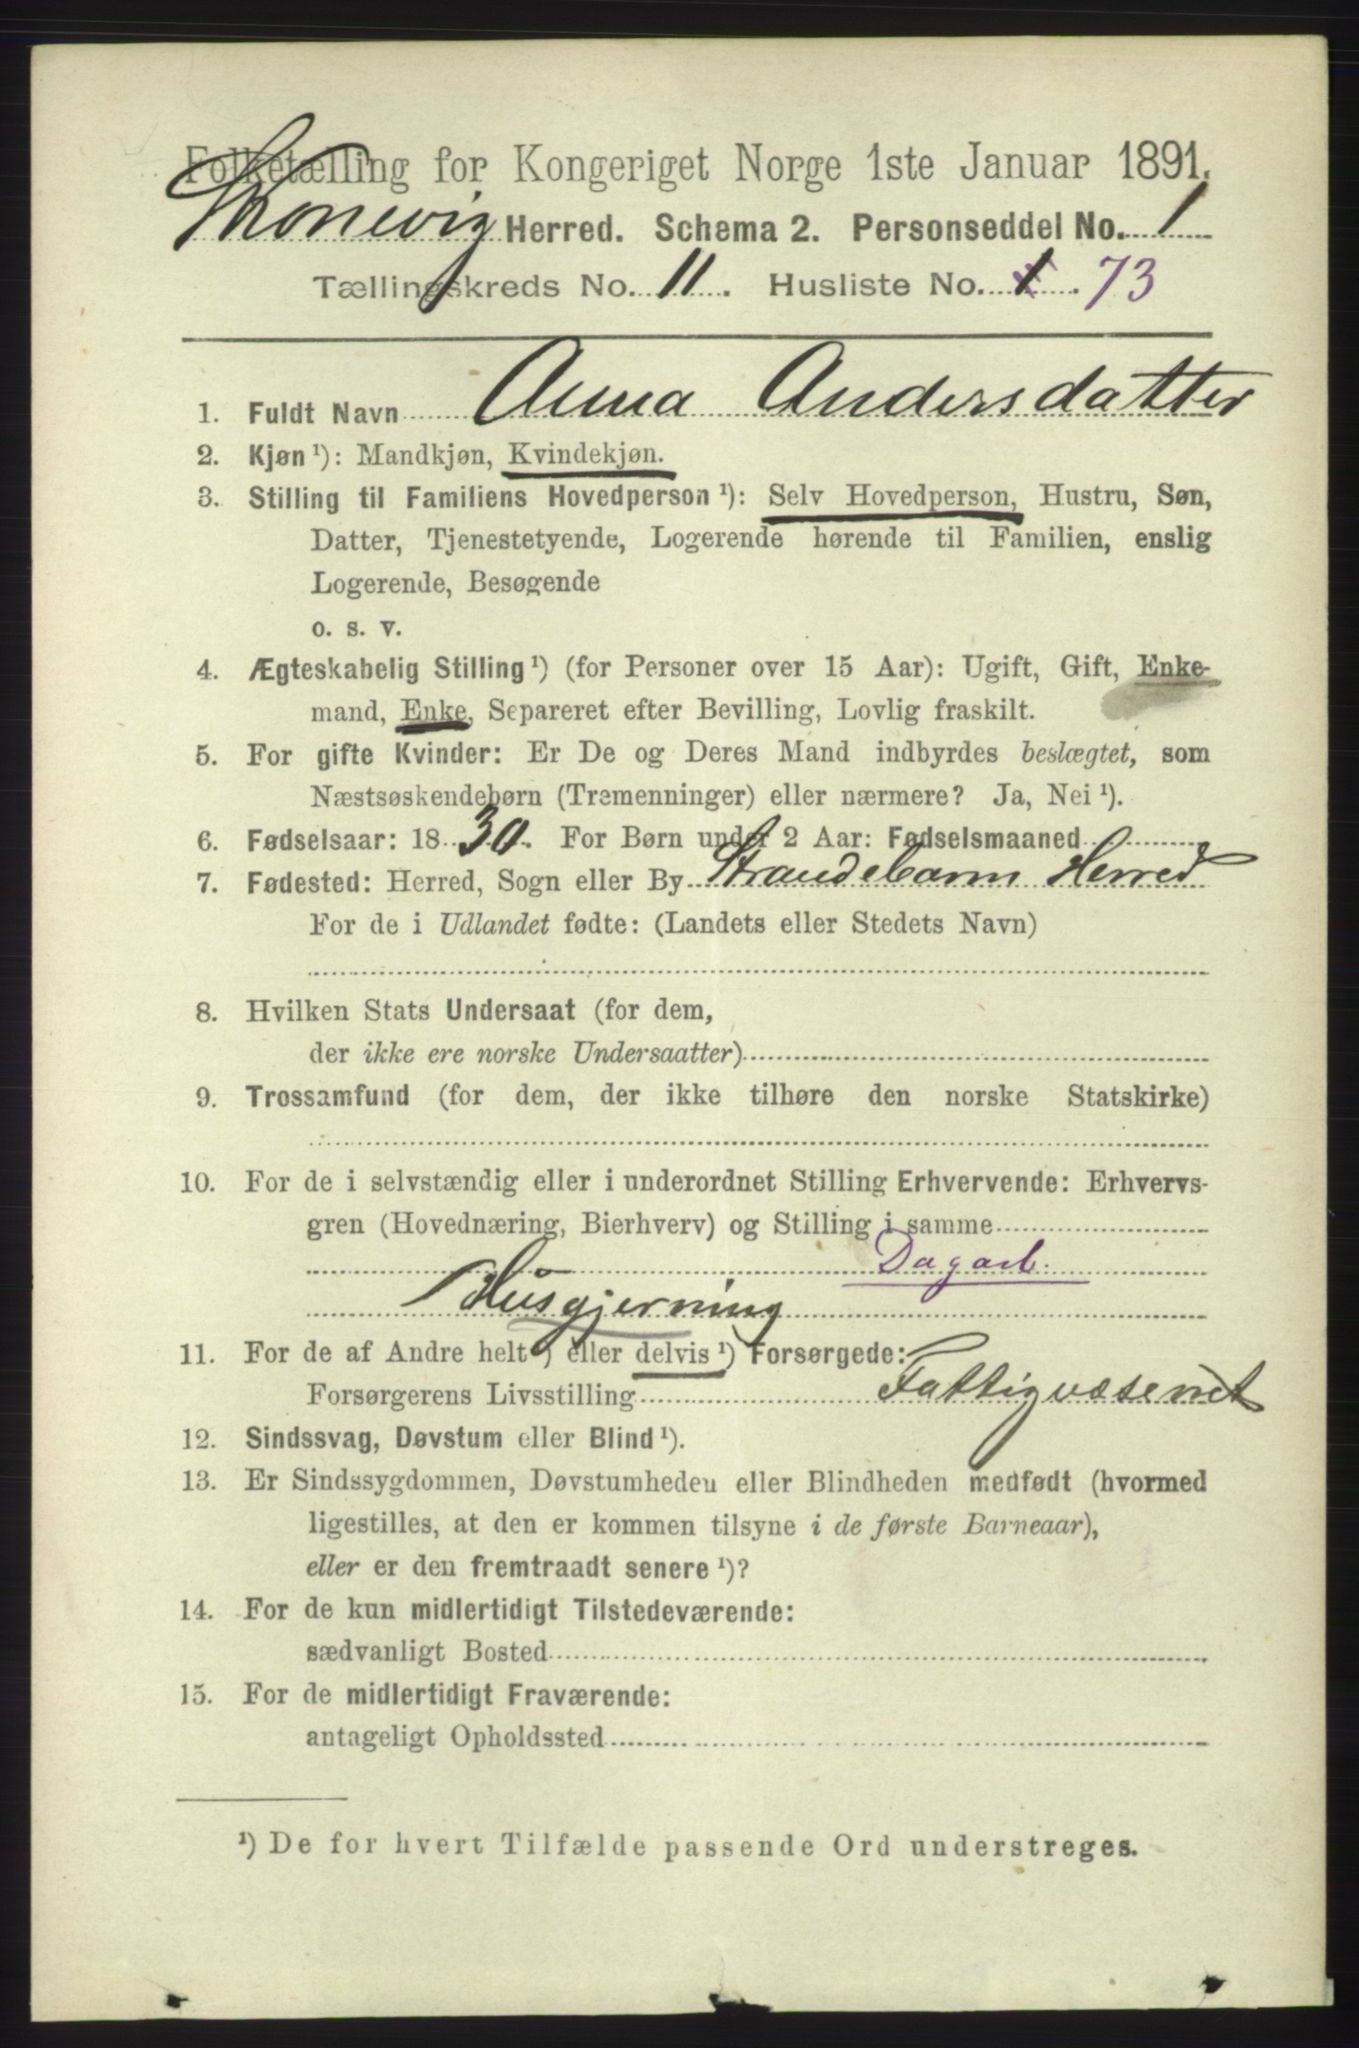 Folketælling for Kongeriget Norge 1ste Januar 1891.
Skonevig Herred. Schema 2. Personseddel No. 1
Tællingskreds No. 11. Husliste No. 1. 73
1. Fuldt Navn Anna Andersdatter
2. Kjøn ¹): Mandkjøn, Kvindekjøn.
3. Stilling til Familiens Hovedperson ¹): Selv Hovedperson, Hustru, Søn,
Datter, Tjenestetyende, Logerende hørende til Familien, enslig
Logerende, Besøgende
o. s. v.
4. Ægteskabelig Stilling ¹) (for Personer over 15 Aar): Ugift, Gift, Enke-
mand, Enke, Separeret efter Bevilling, Lovlig fraskilt.
5. For gifte Kvinder: Er De og Deres Mand indbyrdes beslægtet, som
Næstsøskendebørn (Tremenninger) eller nærmere? Ja, Nei ¹).
6. Fødselsaar: 1830. For Børn under 2 Aar: Fødselsmaaned
7. Fødested: Herred, Sogn eller By Strandebarm Herred
For de i Udlandet fødte: (Landets eller Stedets Navn)
8. Hvilken Stats Undersaat (for dem,
der ikke ere norske Undersaatter)
9. Trossamfund (for dem, der ikke tilhøre den norske Statskirke)
10. For de i selvstændig eller i underordnet Stilling Erhvervende: Erhvervs-
gren (Hovednæring, Bierhverv) og Stilling i samme
Dagarb.
Husgjerning
11. For de af Andre helt, eller delvis ¹) Forsørgede:
Forsørgerens Livsstilling Fattigvæsenet
12. Sindssvag, Døvstum eller Blind ¹).
13. Er Sindssygdommen, Døvstumheden eller Blindheden medfødt (hvormed
ligestilles, at den er kommen tilsyne i de første Barneaar),
eller er den fremtraadt senere ¹)?
14. For de kun midlertidigt Tilstedeværende:
sædvanligt Bosted
15. For de midlertidigt Fraværende:
antageligt Opholdssted
¹) De for hvert Tilfælde passende Ord understreges.